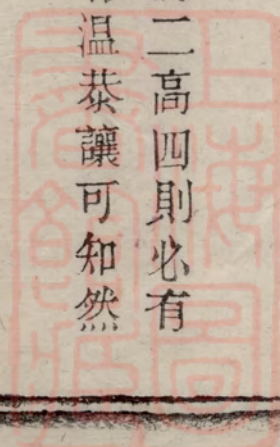 二高四則必有
温恭讓可知然